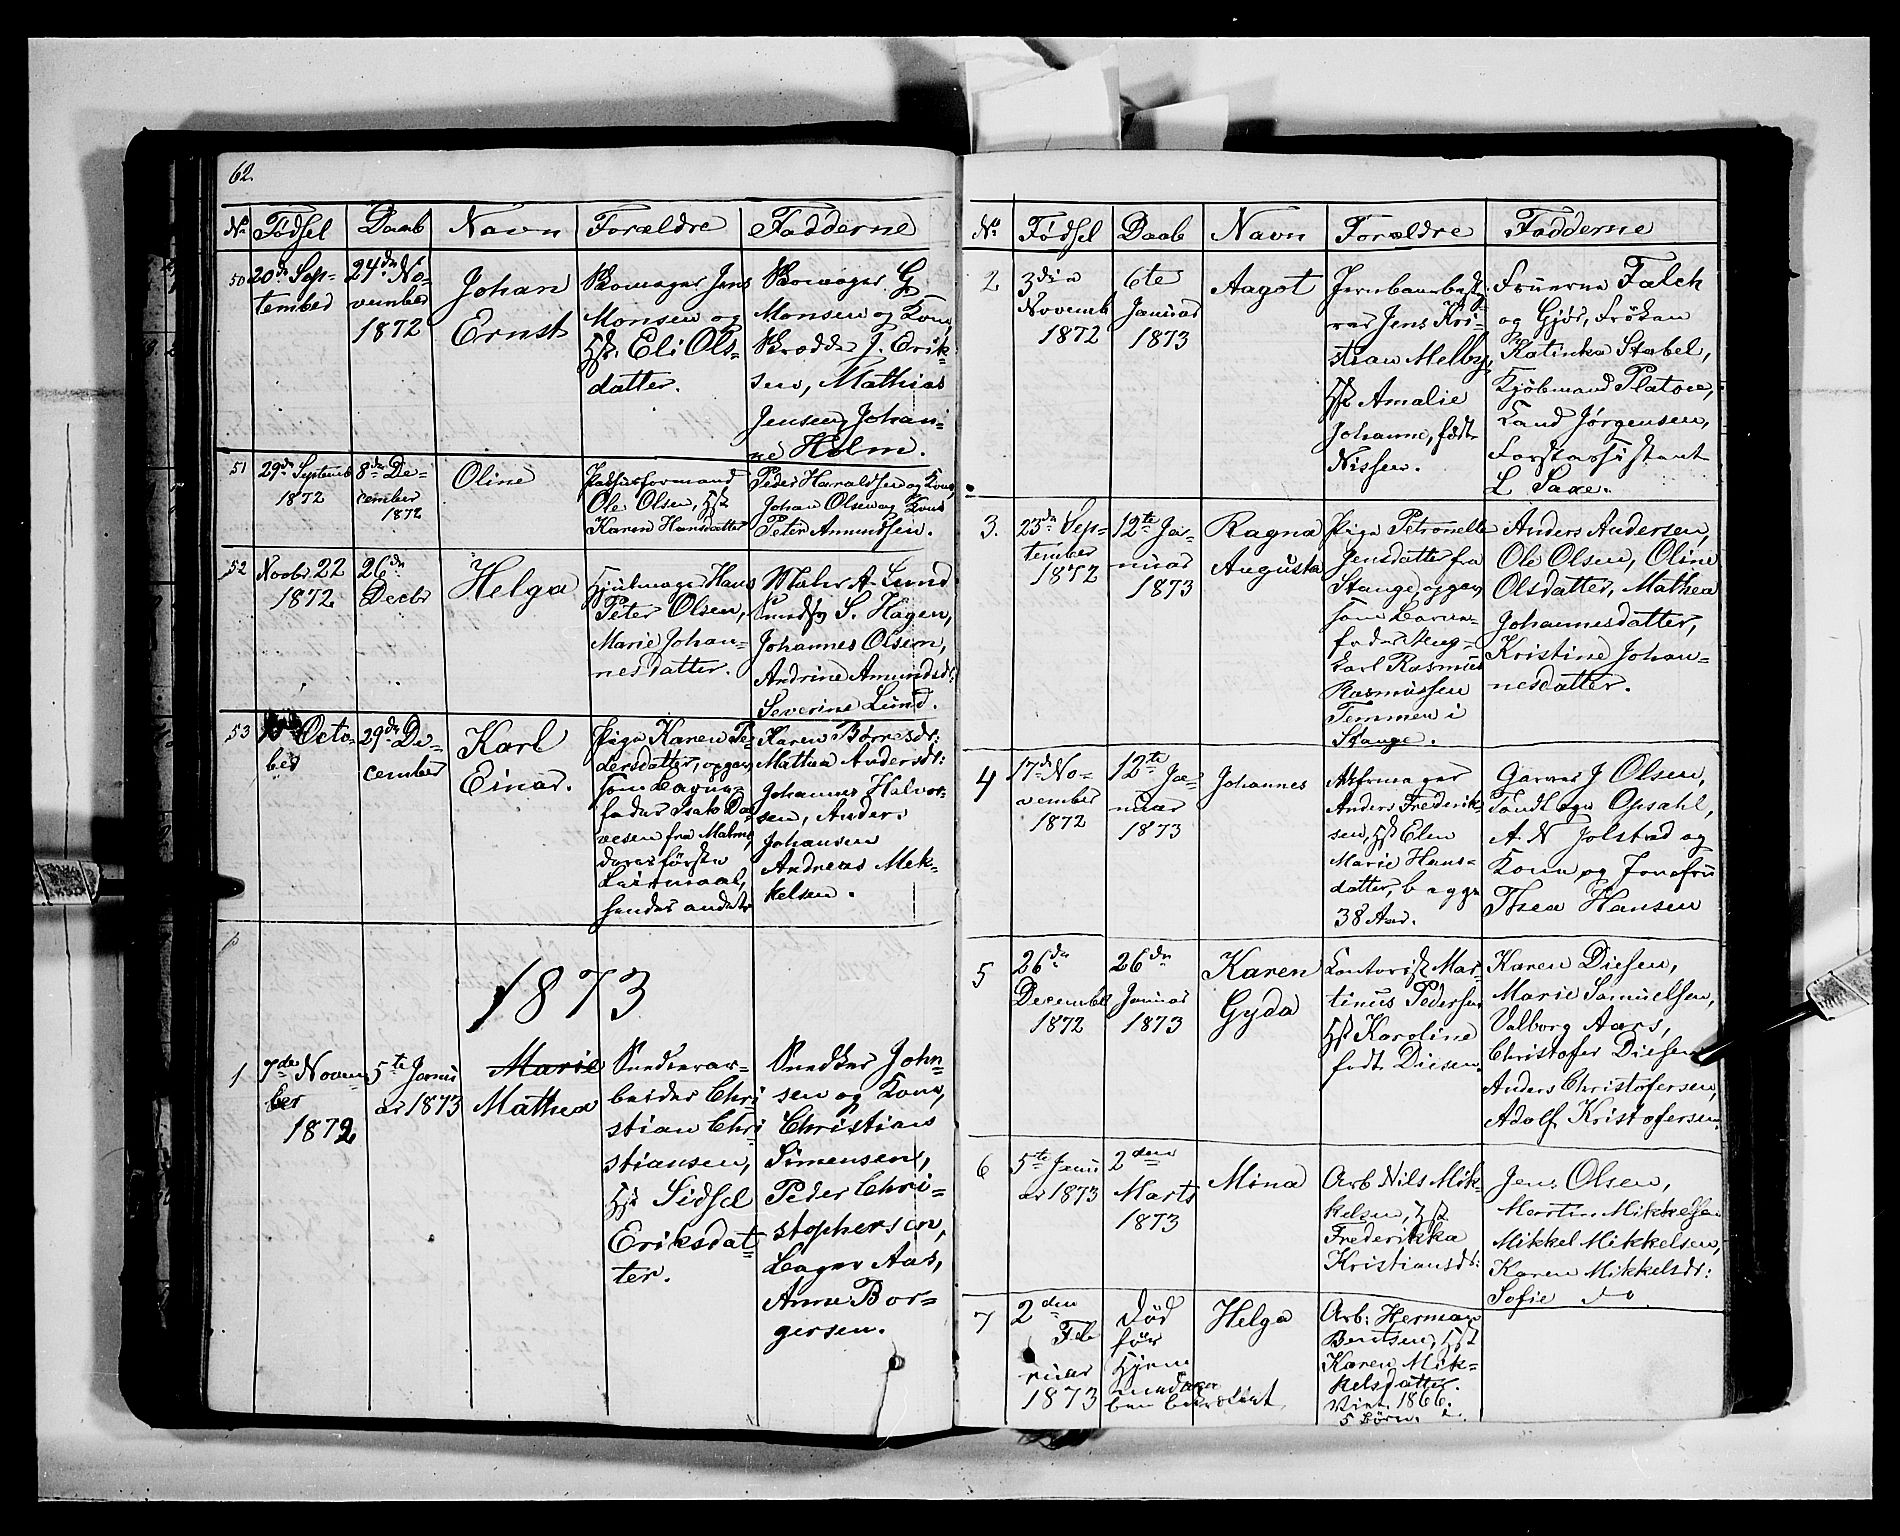 62.
No Fødsel Daab Navn Forældre Fadderne
50 20de Sep-
tember
24de No-
vember
1872
Johan
Ernst
Skomager Jens
Monsen og
Hst. Eli Ols-
datter.
Skomager G
Monsen og Kone,
Skrædder J. Erik-
sen, Mathias
Jensen, Johan-
ne Holm.
51 29de Septemb
1872
8de De-
cember
1872
Oline
Ole Olsen, Hst
Karen Hansdatter
Peder Haraldsen og Kone,
Johan Olsen og Kone
Peter Amundsen.
52 Novbr 22
1872
26de
Decbr
Helga
Hjulmager Hans
Peter Olsen,
Marie Johan-
nesdatter.
Maler A. Lund
S. Hagen,
Johannes Olsen,
Andrine Amundsdr:
Severine Lund.
53 Octo-
ber
29de De-
cember
Karl
Einar.
Pige Karen Pe-
dersdatter, opgav
som Barne-
fader Isak Da-
vesen fra Malmø,
deres første
Leiermaal,
hendes andet
Karen Børresdr:
Mathea Andersdr:
Johannes Halvor-
sen, Anders
Johansen
Andreas Mek-
kelsen.
1873
1 7de Novem-
ber
1872
5te Janu
ar 1873
Marie
Mathea
Christian Chri
stiansen,
Hst Sidsel
Eriksdat-
ter.
Snedker John-
sen og Kone,
Christian
Simensen,
Peder Chri-
stophersen,
Bager Aas,
Anne Bor-
gersen.
No Fødsel Daab Navn Forældre Fadderne
2 3die
Novemb
1872
6te
Januar
1873
Aagot
Jens Kri-
stian Melby,
Hst Amalie
Johanne, født
Nissen.
Fruerne Falch
og Gjør, Frøken
Katinka Stabel,
Kjøbmand Platou,
Cand Jørgensen,
Forstassistent
L Saxe.
3. 23de Sep-
tember
1872
12te Ja-
nuar
1873
Ragna
Augusta
Pige Petronelle
Jensdatter fra
Stange, opgav
som Barne-
fader Ung-
karl Rasmus
Rasmussen
Temmen i
Stange.
Anders Andersen,
Ole Olsen, Oline
Olsdatter, Mathea
Johannesdatter,
Kristine Johan-
nesdatter.
4 17de No-
vember
1872
12te Ja-
nuar
1873
Johannes
Anders Frederik-
sen, Hst Elen
Marie Hans-
datter, begge
38 Aar.
Garver J Olsen,
Opsahl,
A. N Jolstad og
Kone og Jomfru
Thea Hansen
5 26de
December
1872
26de
Januar
1873
Karen
Gyda
Contorist Mar-
tinus Pedersen
Hst Karoline
født Diesen.
Karen Diesen,
Marie Samuelsen,
Valborg Aars,
Christofer Diesen
Anders Christofersen,
Adolf Kristofersen.
6 5te Janu
ar 1873
2den
Marts
1873
Mina
Arb Nils Mik-
kelsen, Hst
Frederikka
Kristiansdr:
Jens Olsen,
Martin Mikkelsen
Mikkel Mikkelsen,
Karen Mikkelsdr:
Sofie do
7 2den
Feb
ruar
1873
Død
før
Hjem
Helga
Arb: Herman
Bentsen, Hst
Karen Mik-
kelsdatter.
Viet 1866.
5 Børn.